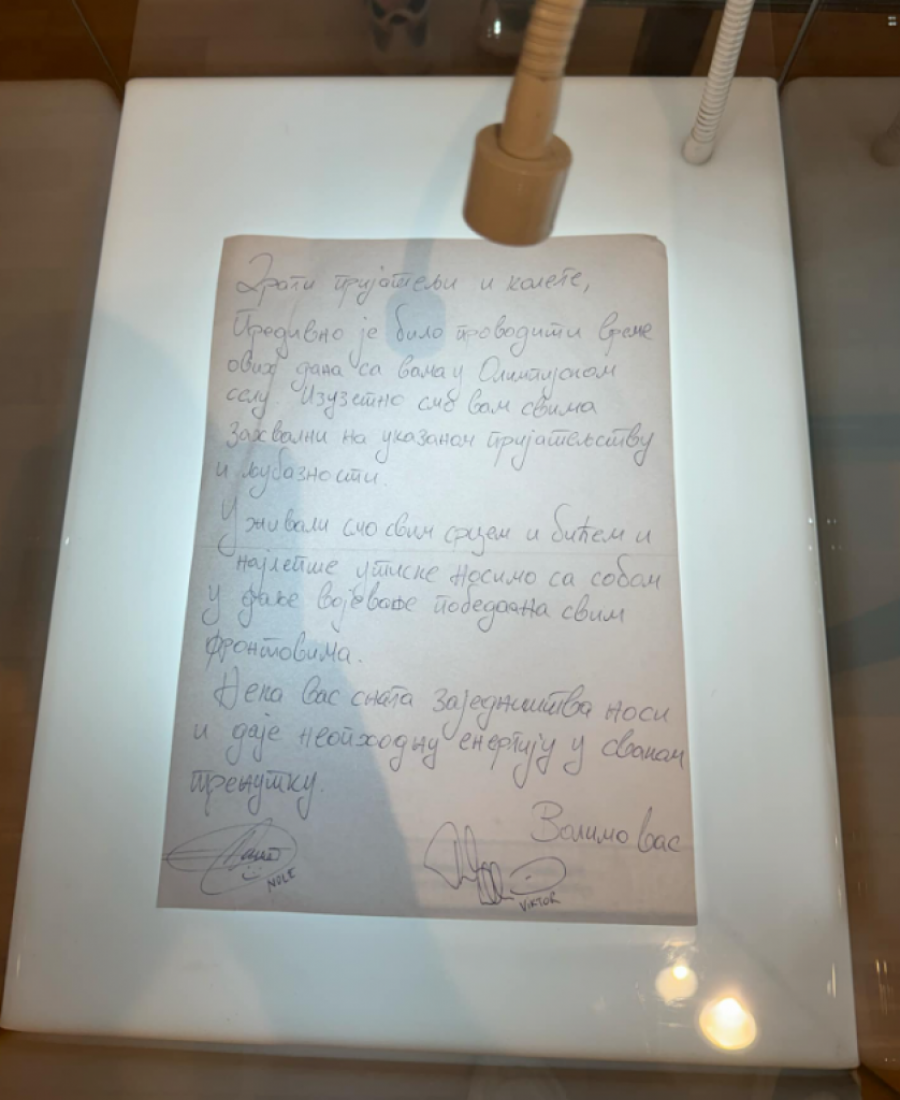 Драги пријатељи и колеге,
Предивно је било проводити време
ових дана са вама у Олимпијском
селу. Изузетно смо вам свима
захвални на указаном пријатељству
и љубазности.
Уживали смо свим срцем и бићем и
најлепше утиске носимо са собом
у даље војевање победа на свим
фронтовима.
Нека вас снага заједништва носи
и даје неопходну енергију у сваком
тренутку.
Волимо вас
NOLE
VIKTOR